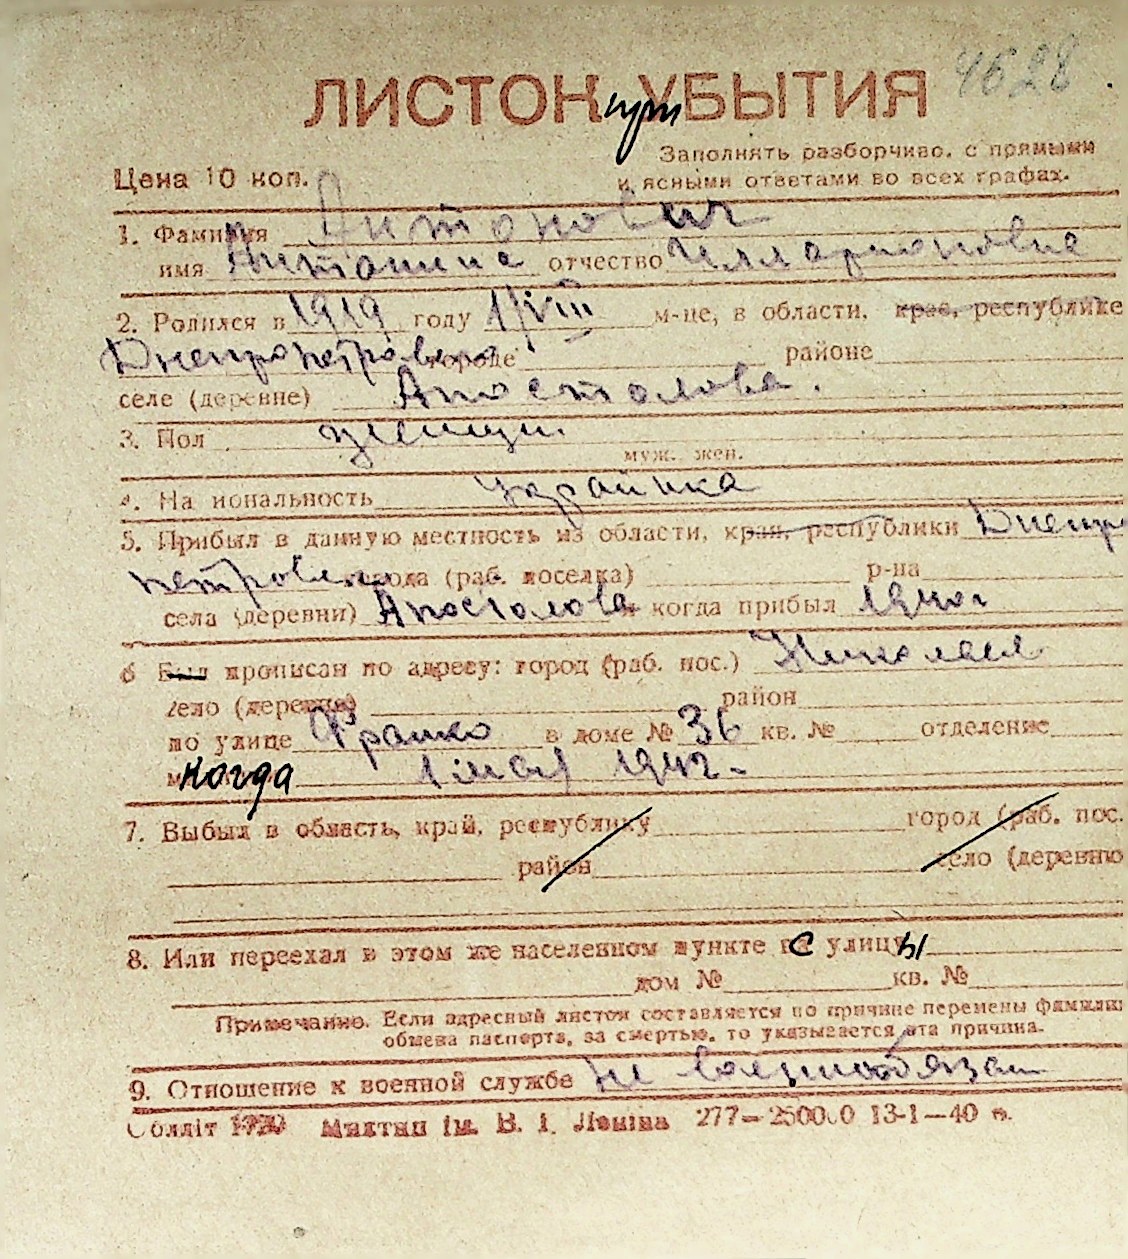 4628
ЛИСТОК при УБЫТИЯ
Заполнять разборчиво, с прямыми
и ясными ответами во всех графах.
Цена 10 коп.
1. Фамилия Антонович
имя Антонина отчество Илларионовна
2. Родился в 1919 году 1/VIII м-це, в области, края, республике
Днепропетровско городе районе
селе (деревне) Апостолова.
3. Пол женщин.
муж. жен.
4. На иональность украинка
5. Прибыл в данную местность из области, края, республики Днепро
петровско города (раб. поселка) р-на
села (деревни) Апостолова когда прибыл 1940г
6 Был прописан по адресу: город (раб. пос.) Николаев
село (деревне) район
по улице Франко в доме № 36 кв. № отделение
когда 1 мая 1942г.
7. Выбыл в область, край, республику город (раб. пос.
район село (деревню
8. Или переехал в этом же населенном пункте с улицы
дом № кв. №
Примечание. Если адресный листок составляется по причине перемены фамилии
обмена паспорта, за смертью, то указывается эта причина.
9. Отношение к военной службе не военнообязан
Облліт Миктип ім. В. І. Леніна 277—250000 13-1—40 р.